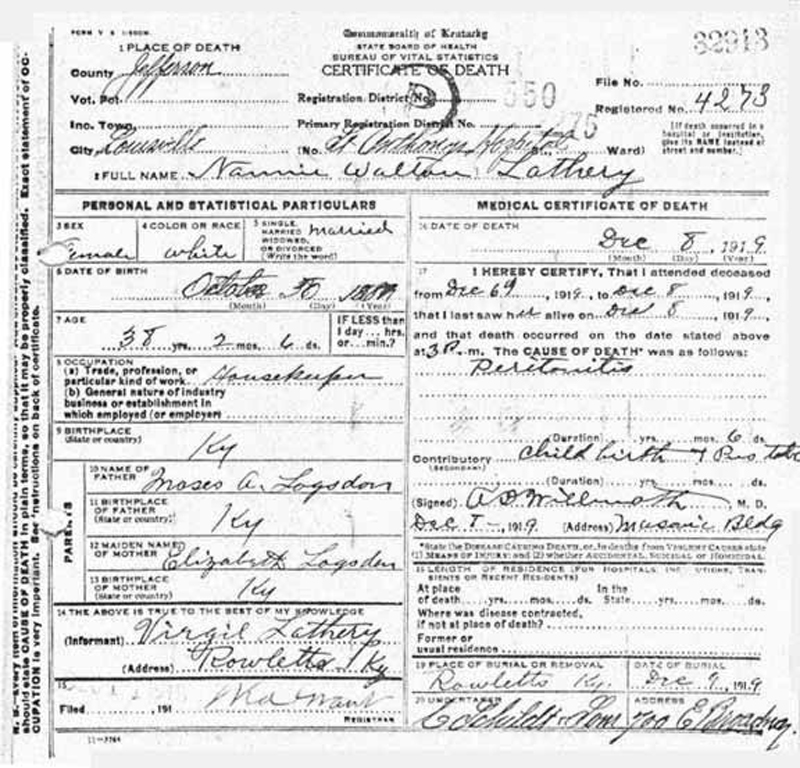 Commonwealth of Kentucky
STATE BOARD OF HEALTH
BUREAU OF VITAL STATISTICS
CERTIFICATE OF DEATH
32913
1 PLACE OF DEATH
County Jefferson
Vot. Pct.
Inc. Town
City Louisville
Registration District No. 550
Primary Registration District No.
(No. St Anthony's Hospital St., Ward)
File No.
Registered No. 4273
[If death occurred in a hospital or institution, give its NAME instead of street and number.]
2 FULL NAME Nannie Walton Lathery
PERSONAL AND STATISTICAL PARTICULARS
3 SEX
Female
4 COLOR OR RACE
white
5 SINGLE, MARRIED WIDOWED, OR DIVORCED (Write the word) Married
6 DATE OF BIRTH
October
(Month) (Day) (Year)
7 AGE
38 yrs. 2 mos. 6 ds.
IF LESS than 1 day... hrs. or... min.?
8 OCCUPATION
(a) Trade, profession, or
particular kind of work Housekeeper
(b) General nature of industry
business or establishment in
which employed (or employer)
9 BIRTHPLACE
(State or country) Ky
PARENTS
10 NAME OF
FATHER Moses A. Logsdon
11 BIRTHPLACE
OF FATHER
(State or country) Ky
12 MAIDEN NAME
OF MOTHER Elizabeth Logsdon
13 BIRTHPLACE
OF MOTHER
(State or country) Ky
14 THE ABOVE IS TRUE TO THE BEST OF MY KNOWLEDGE
(Informant) Virgil Lathery
(Address) Rowletts Ky
15
Filed , 191
REGISTRAR
11-3764
MEDICAL CERTIFICATE OF DEATH
16 DATE OF DEATH
Dec 8, 1919
(Month) (Day) (Year)
17 I HEREBY CERTIFY, That I attended deceased
from Dec 6th, 1919, to Dec 8, 1919,
that I last saw her alive on Dec 8, 1919,
and that death occurred on the date stated above
at 3 P. m. The CAUSE OF DEATH* was as follows:
Peritonitis
(Duration) yrs. mos. 6 ds.
Contributory Child birth +
(SECONDARY)
(Duration) yrs. mos. ds.
(Signed) Willmoth, M. D.
Dec, 1919 (Address) Masonic Bldg
*State the DISEASE CAUSING DEATH, or, in deaths from VIOLENT CAUSES state
(1) MEANS OF INJURY; and (2) whether ACCIDENTAL, SUICIDAL or HOMICIDAL.
18 LENGTH OF RESIDENCE (FOR HOSPITALS, INSTITUTIONS, TRANSIENTS OR RECENT RESIDENTS)
At place of death yrs. mos. ds. In the State yrs. mos. ds.
Where was disease contracted,
if not at place of death?
Former or
usual residence
19 PLACE OF BURIAL OR REMOVAL
Rowletts Ky.
DATE OF BURIAL
Dec 9, 1919
20 UNDERTAKER
ADDRESS
700 E Broadway.
should state CAUSE OF DEATH in plain terms, so that it may be properly classified. Exact statement of OC-
CUPATION is very important. See instructions on back of certificate.